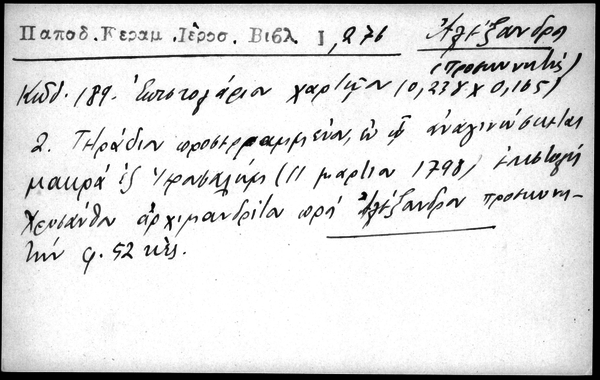 Παποδ. Κεραμ. Ιεροσ. Βιβλ I, 276 Ἀλέξανδρο
(προσκυνητής)
Κωδ. 189. Ἐπιστολάριον χαρτῷον (0,238 x 0,165)
2. Τετράδιον προσερραμμένον, ἐν ᾧ ἀναγινώσκεται
μακρά ἐξ Ἱερουσαλήμ (11 μαρτίου 1798) ἐπιστολή
Χρυσάνθου ἀρχιμανδρίτου πρός Ἀλέξανδρον προσκυνη-
τήν φ. 52 κἑ.